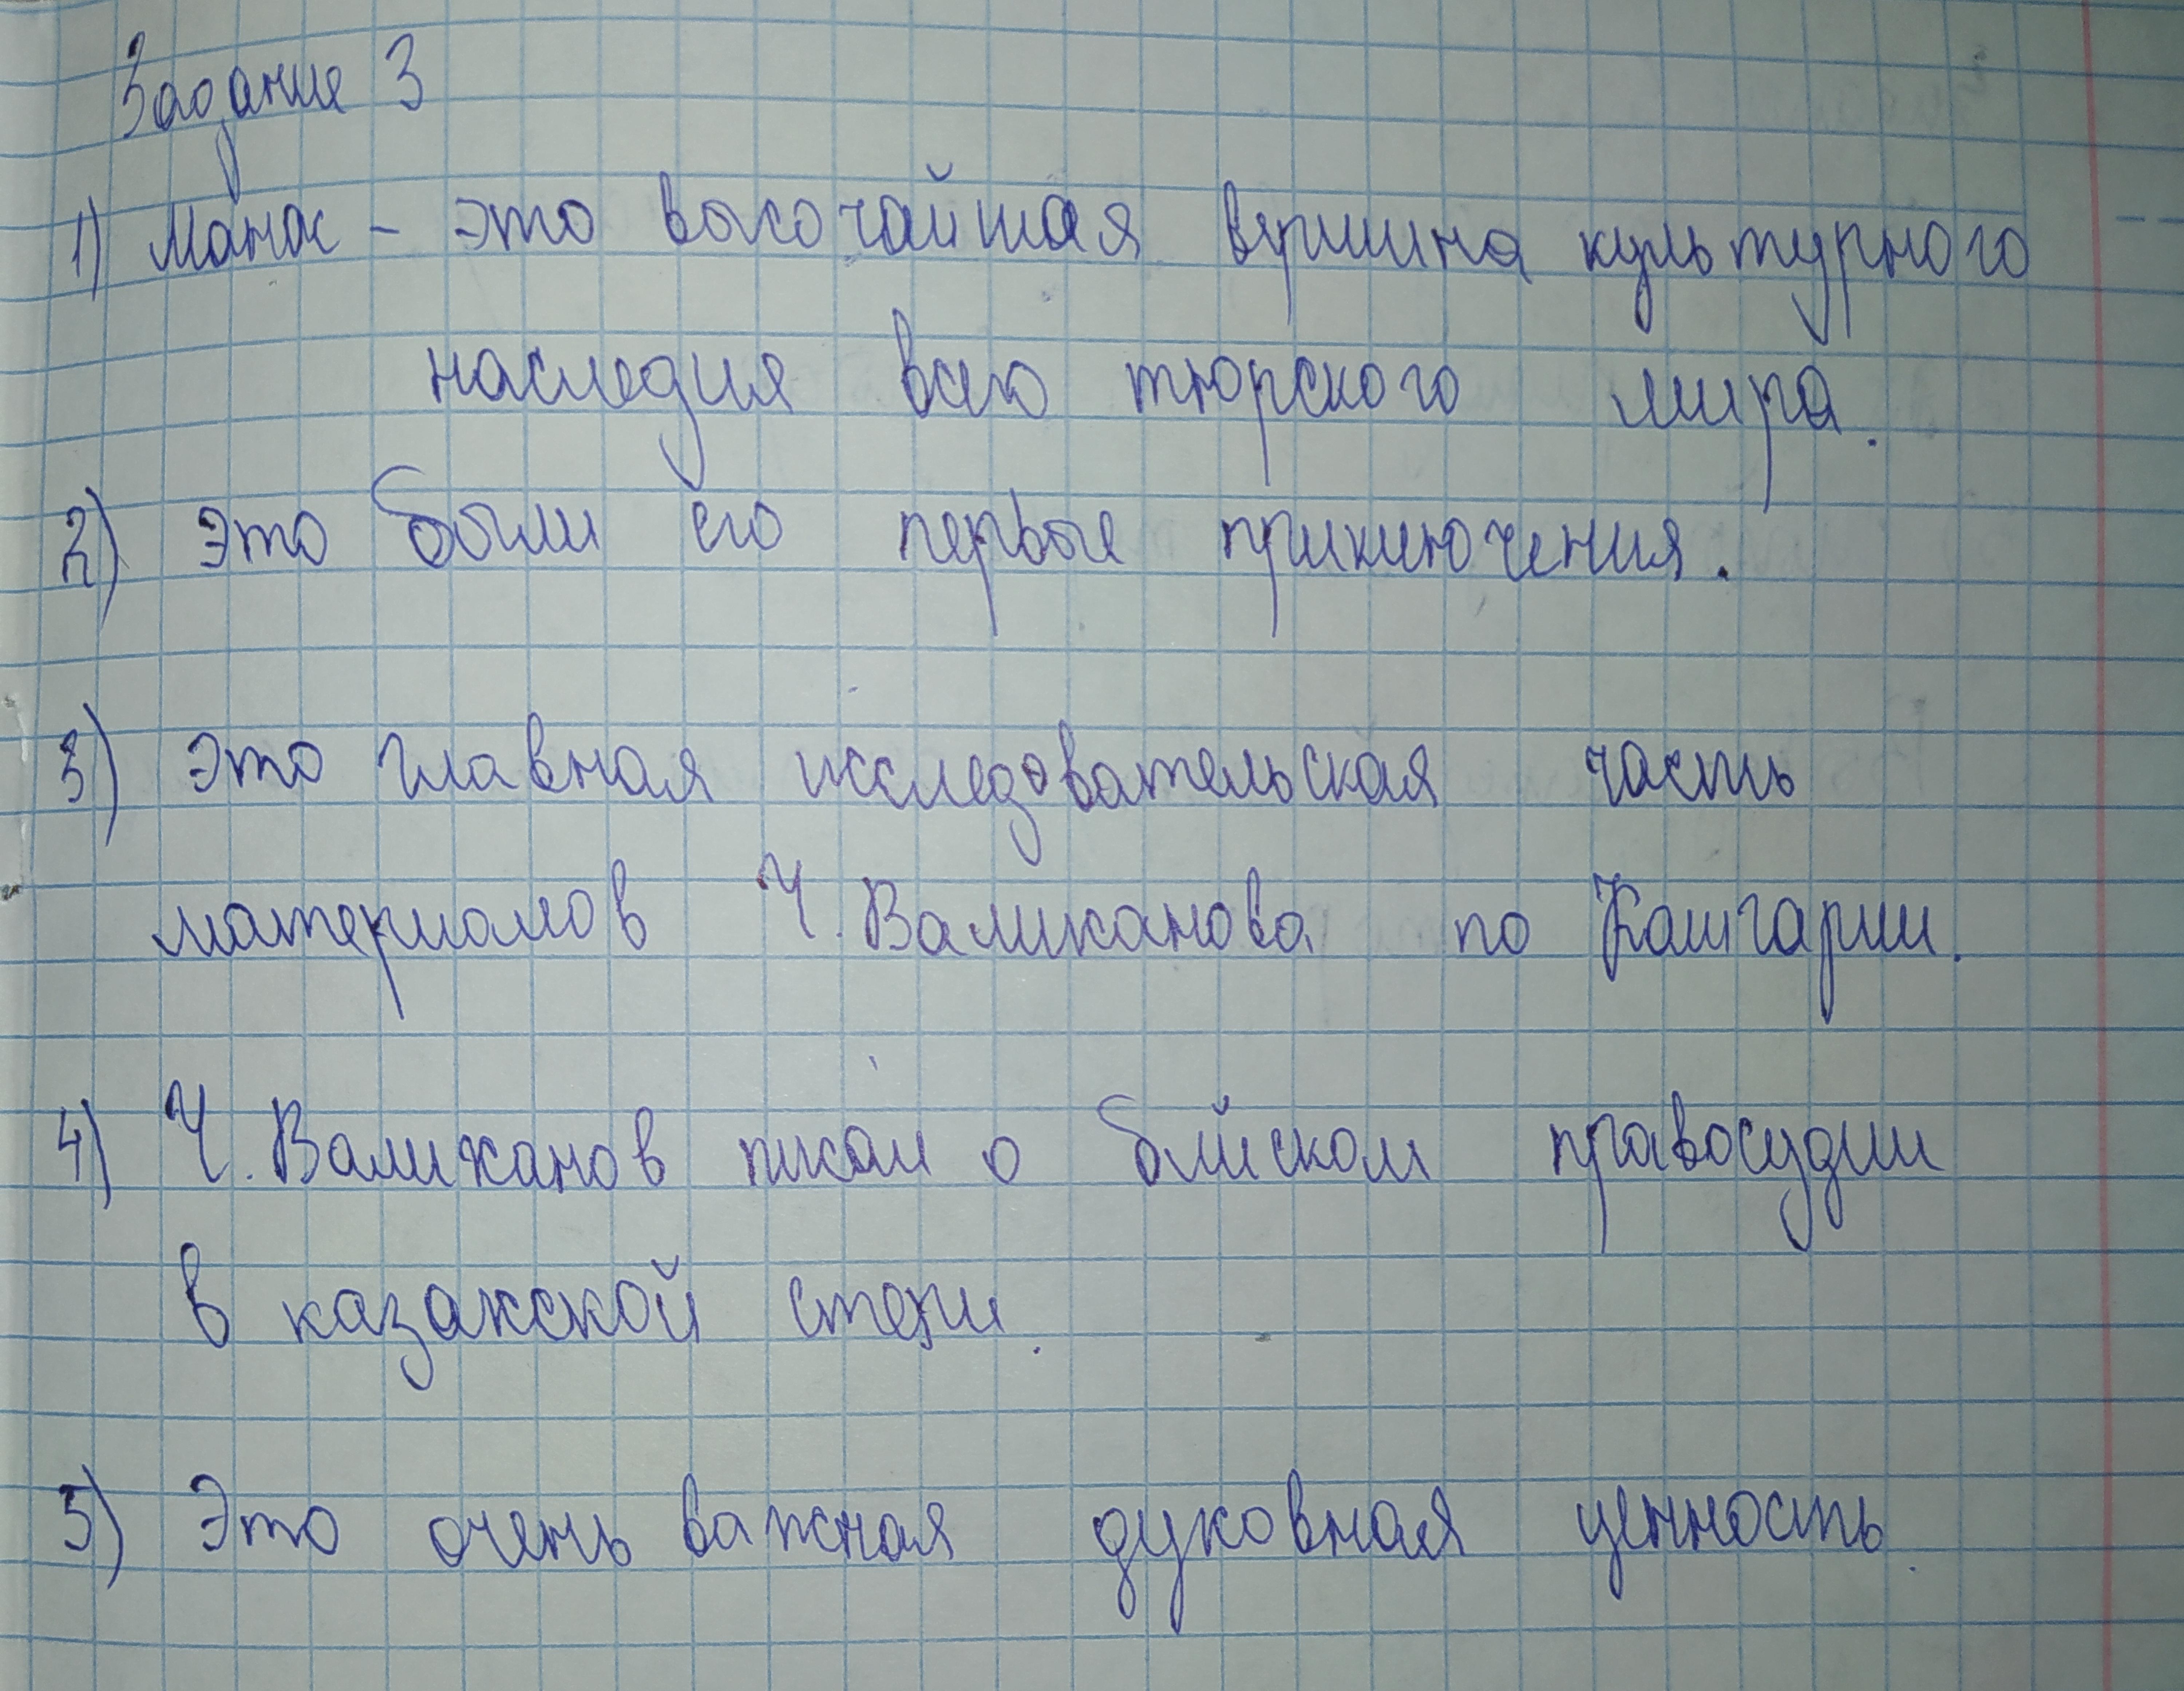 Задание 3
1) Манас - это высочайшая вершина культурного
наследия всего тюрского мира.
2) Это были его первые приключения.
3) Это главная исследовательская часть
материалов Ч. Валиханова по Кашгарии.
4) Ч. Валиханов писал о бийском правосудии
в казахской степи.
5) Это очень важная духовная ценность.